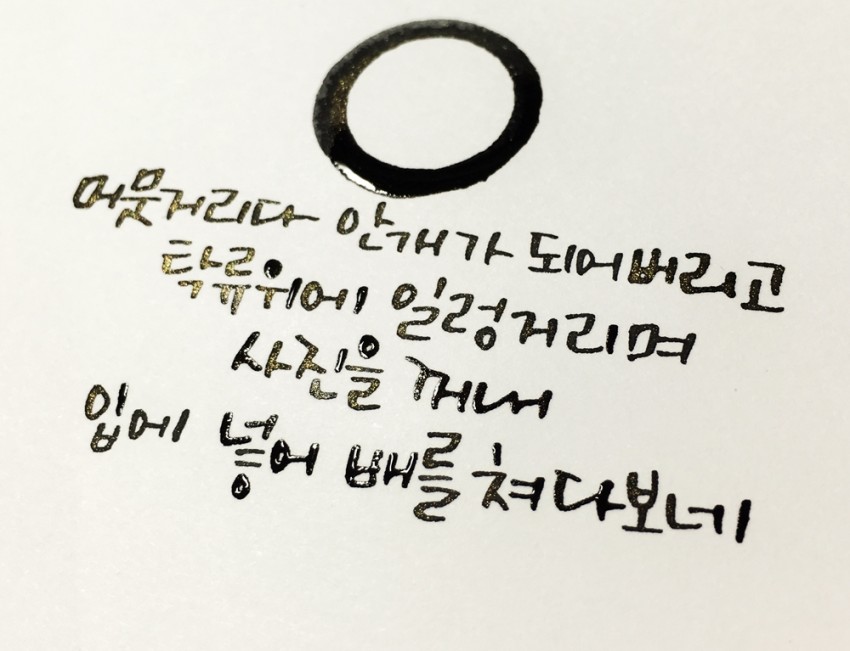 머뭇거리다 안개가 되어버리고
탁류위에 일렁거리며
사진을 꺼내
입에 넣어 배를 쳐다보네